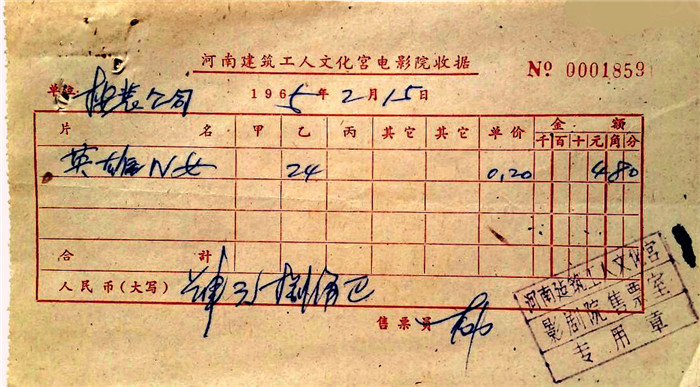 河南建筑工人文化宫电影院收据
№ 0001859
单位 机装公司 1965年2月15日
片名 甲 乙 丙 其它 其它 单价 金额
千 百 十 元 角 分
英雄儿女 24 0.20 4 8 0
合計
人民币(大写) 肆元捌角
售票员
河南建筑工人文化宫
影剧院售票室
专用章